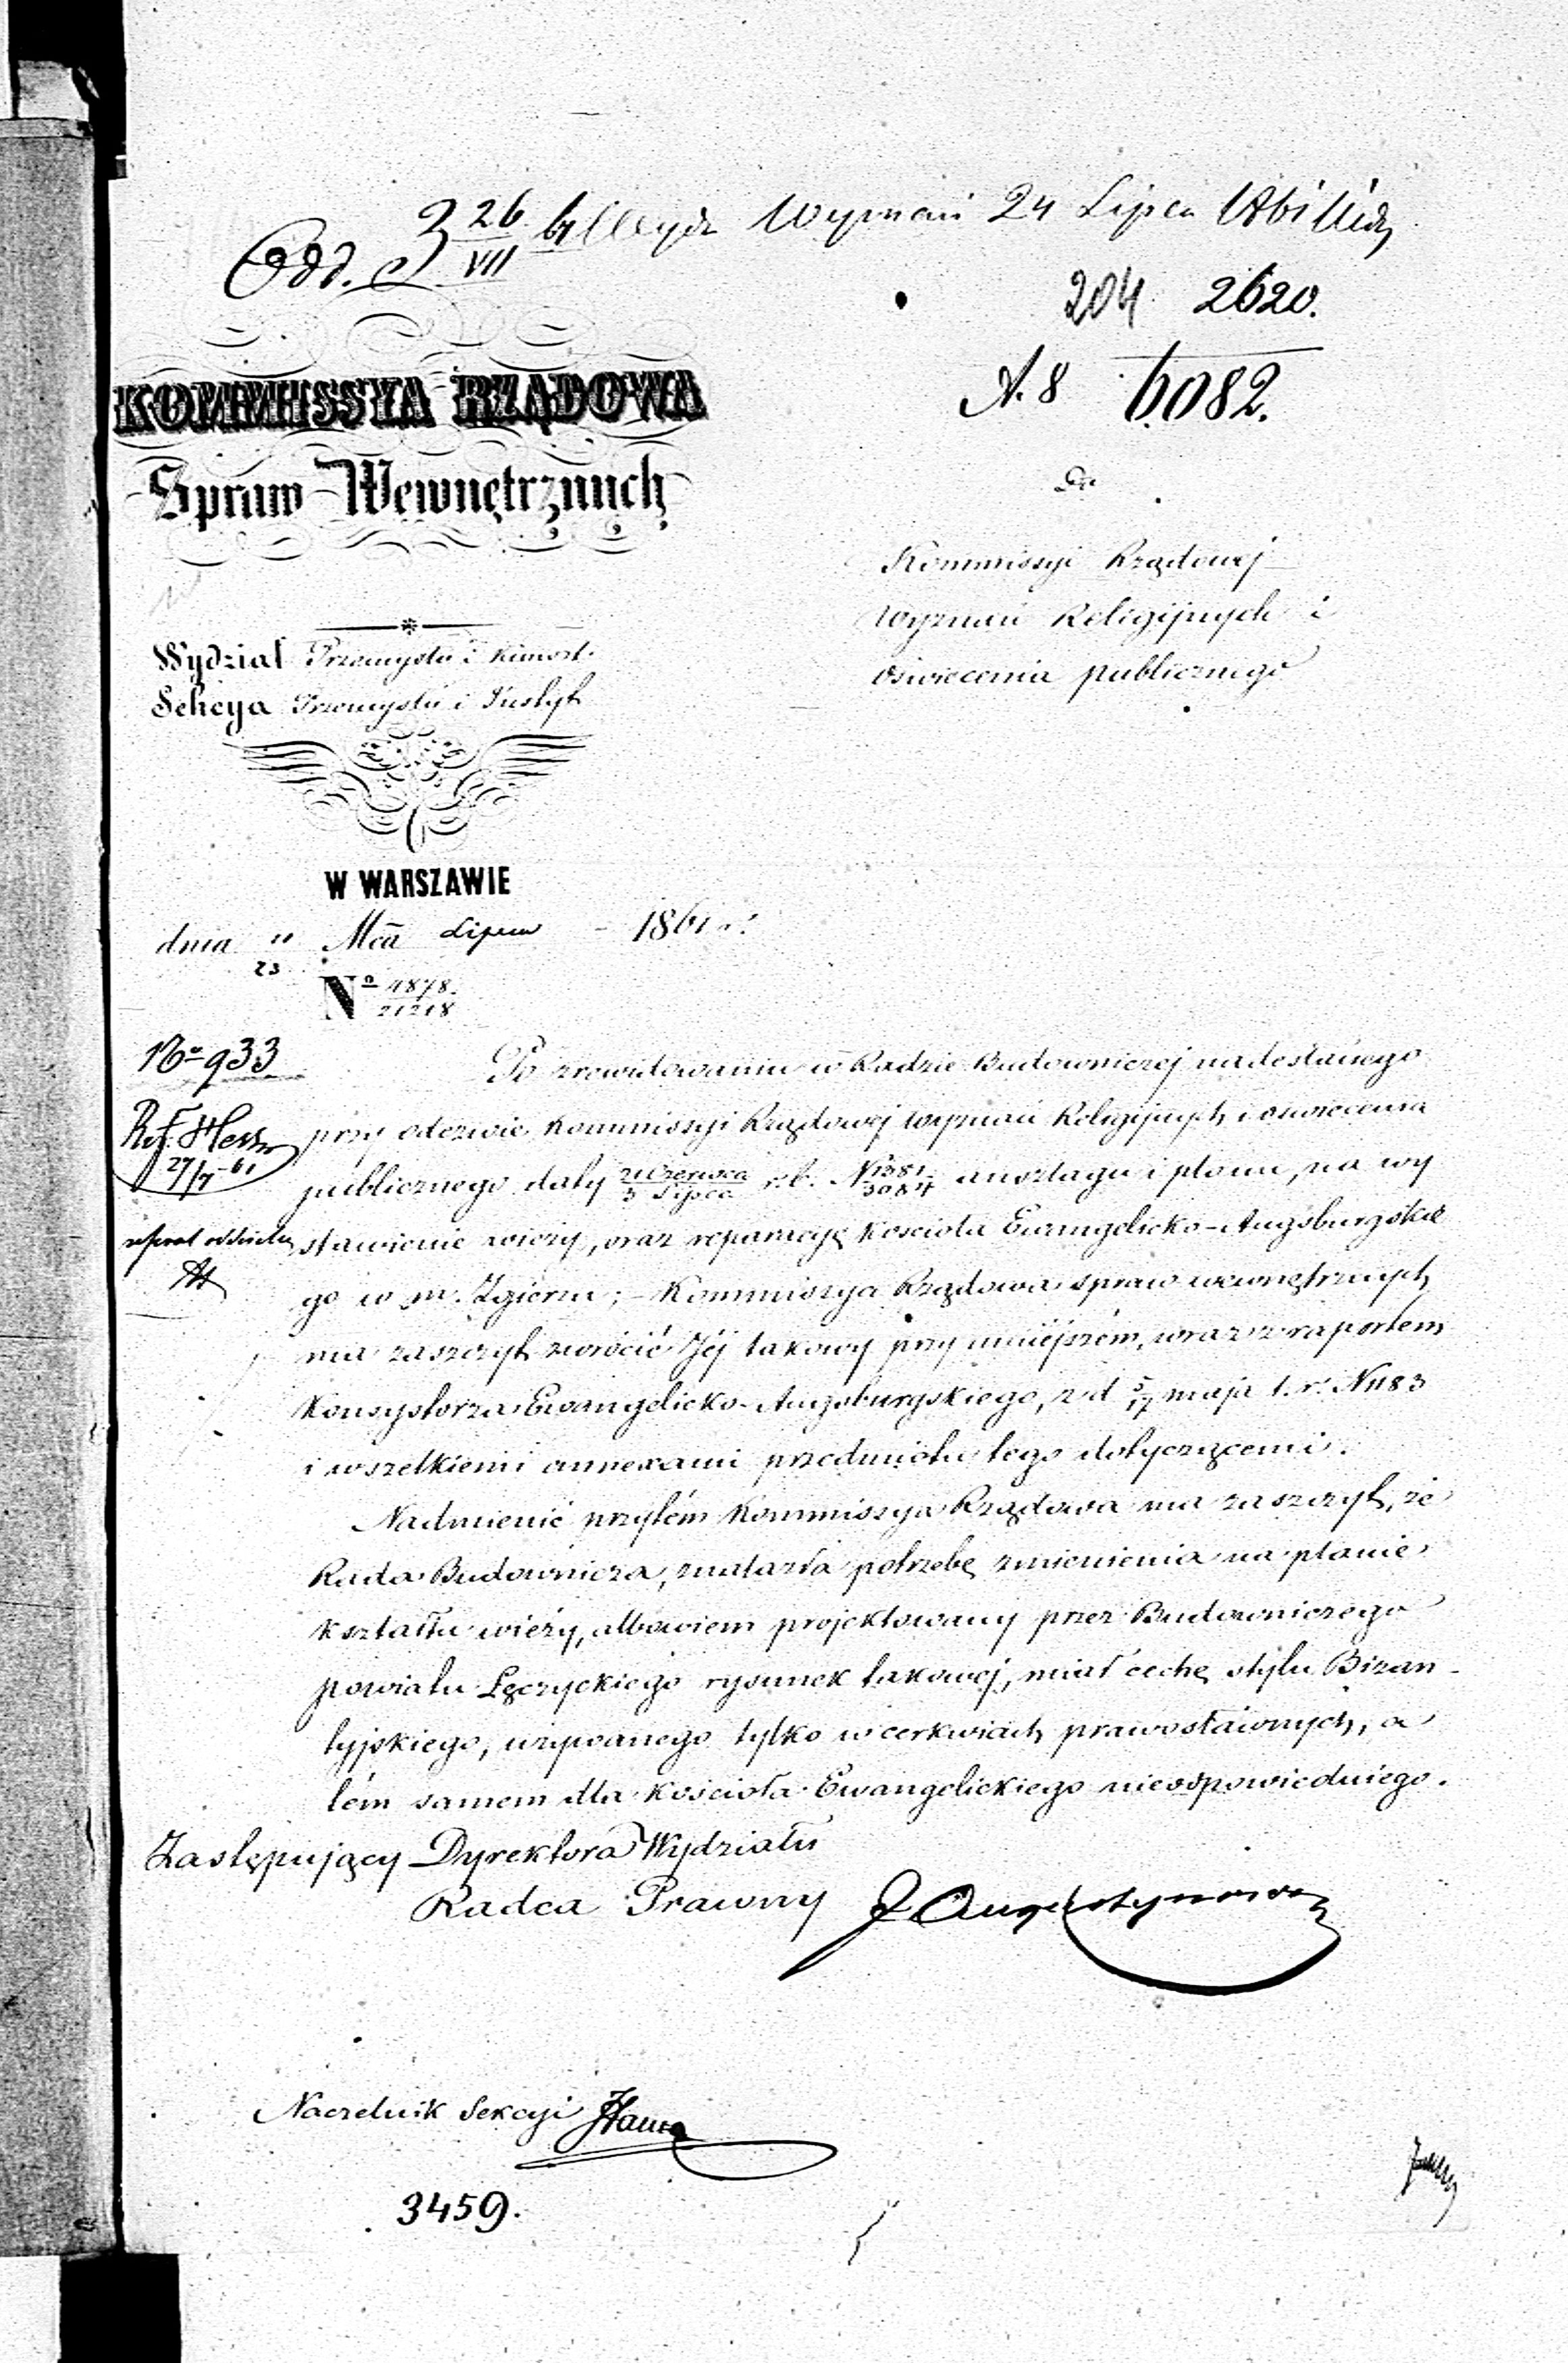 Odd. 2 26/VII
Wyznań 24 Lipca
204 2620.
A. 8 6082.
KOMMISSYA RZĄDOWA
Spraw Wewnętrznych
Do
Kommissyi Rządowej
Wyznań Religijnych i
Oświecenia publicznego
Wydział Przemysłu i Kunszt.
Sekcya Przemysłu i Instyt.
W WARSZAWIE
dnia 11/23 Mca Lipca 1861 r.
No 4878./21218
No 933
Ref. Hess
27/7 - 61
Po zrewidowaniu w Radzie Budowniczej nadesłanego
przy odezwie Kommissyi Rządowej Wyznań Religijnych i oświecenia
publicznego daty 21 Czerwca/3 Lipca r.b. N 1381/3084 anszlagu i planu, na wy
stawienie wieży, oraz reparacyę kościoła Ewangelicko-Augsburgskie
go w m. Zgierzu; - Kommissya Rządowa spraw wewnętrznych
ma zaszczyt zwrócić Jéj takowy przy niniéjszém, wraz z raportem
Konsystorza Ewangelicko-Augsburgskiego, z d 5/17 maja t.r. N 1183
i wszelkiemi annexami przedmiotu tego dotyczącemi.
Nadmienić przytém Kommissya Rządowa ma zaszczyt, że
Rada Budownicza, znalazła potrzebę zmienienia na planie
kształtu wieży, albowiem projektowany przez Budowniczego
powiatu Łęczyckiego rysunek takowej, miał cechę stylu Bizan-
tyjskiego, używanego tylko w cerkwiach prawosławnych, a
tém samem dla kościoła Ewangelickiego nieodpowiedniego.
Zastępujący Dyrektora Wydziału
Radca Prawny
Naczelnik Sekcyi
3459.